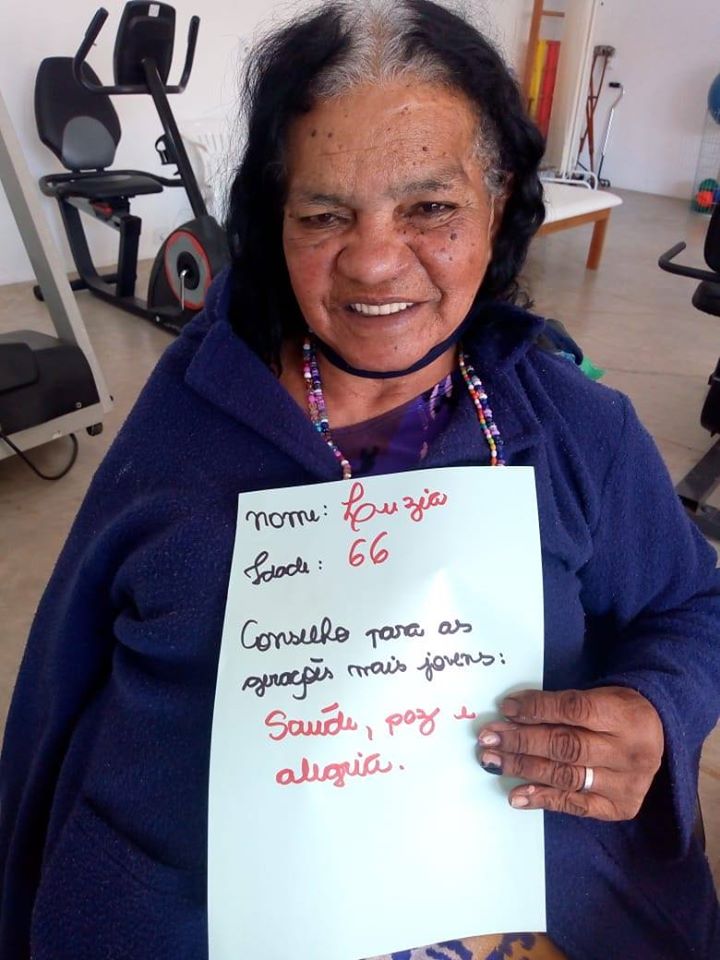 nome: Luzia
Idade: 66
Conselho para as
gerações mais jovens:
Saúde, paz e
alegria.